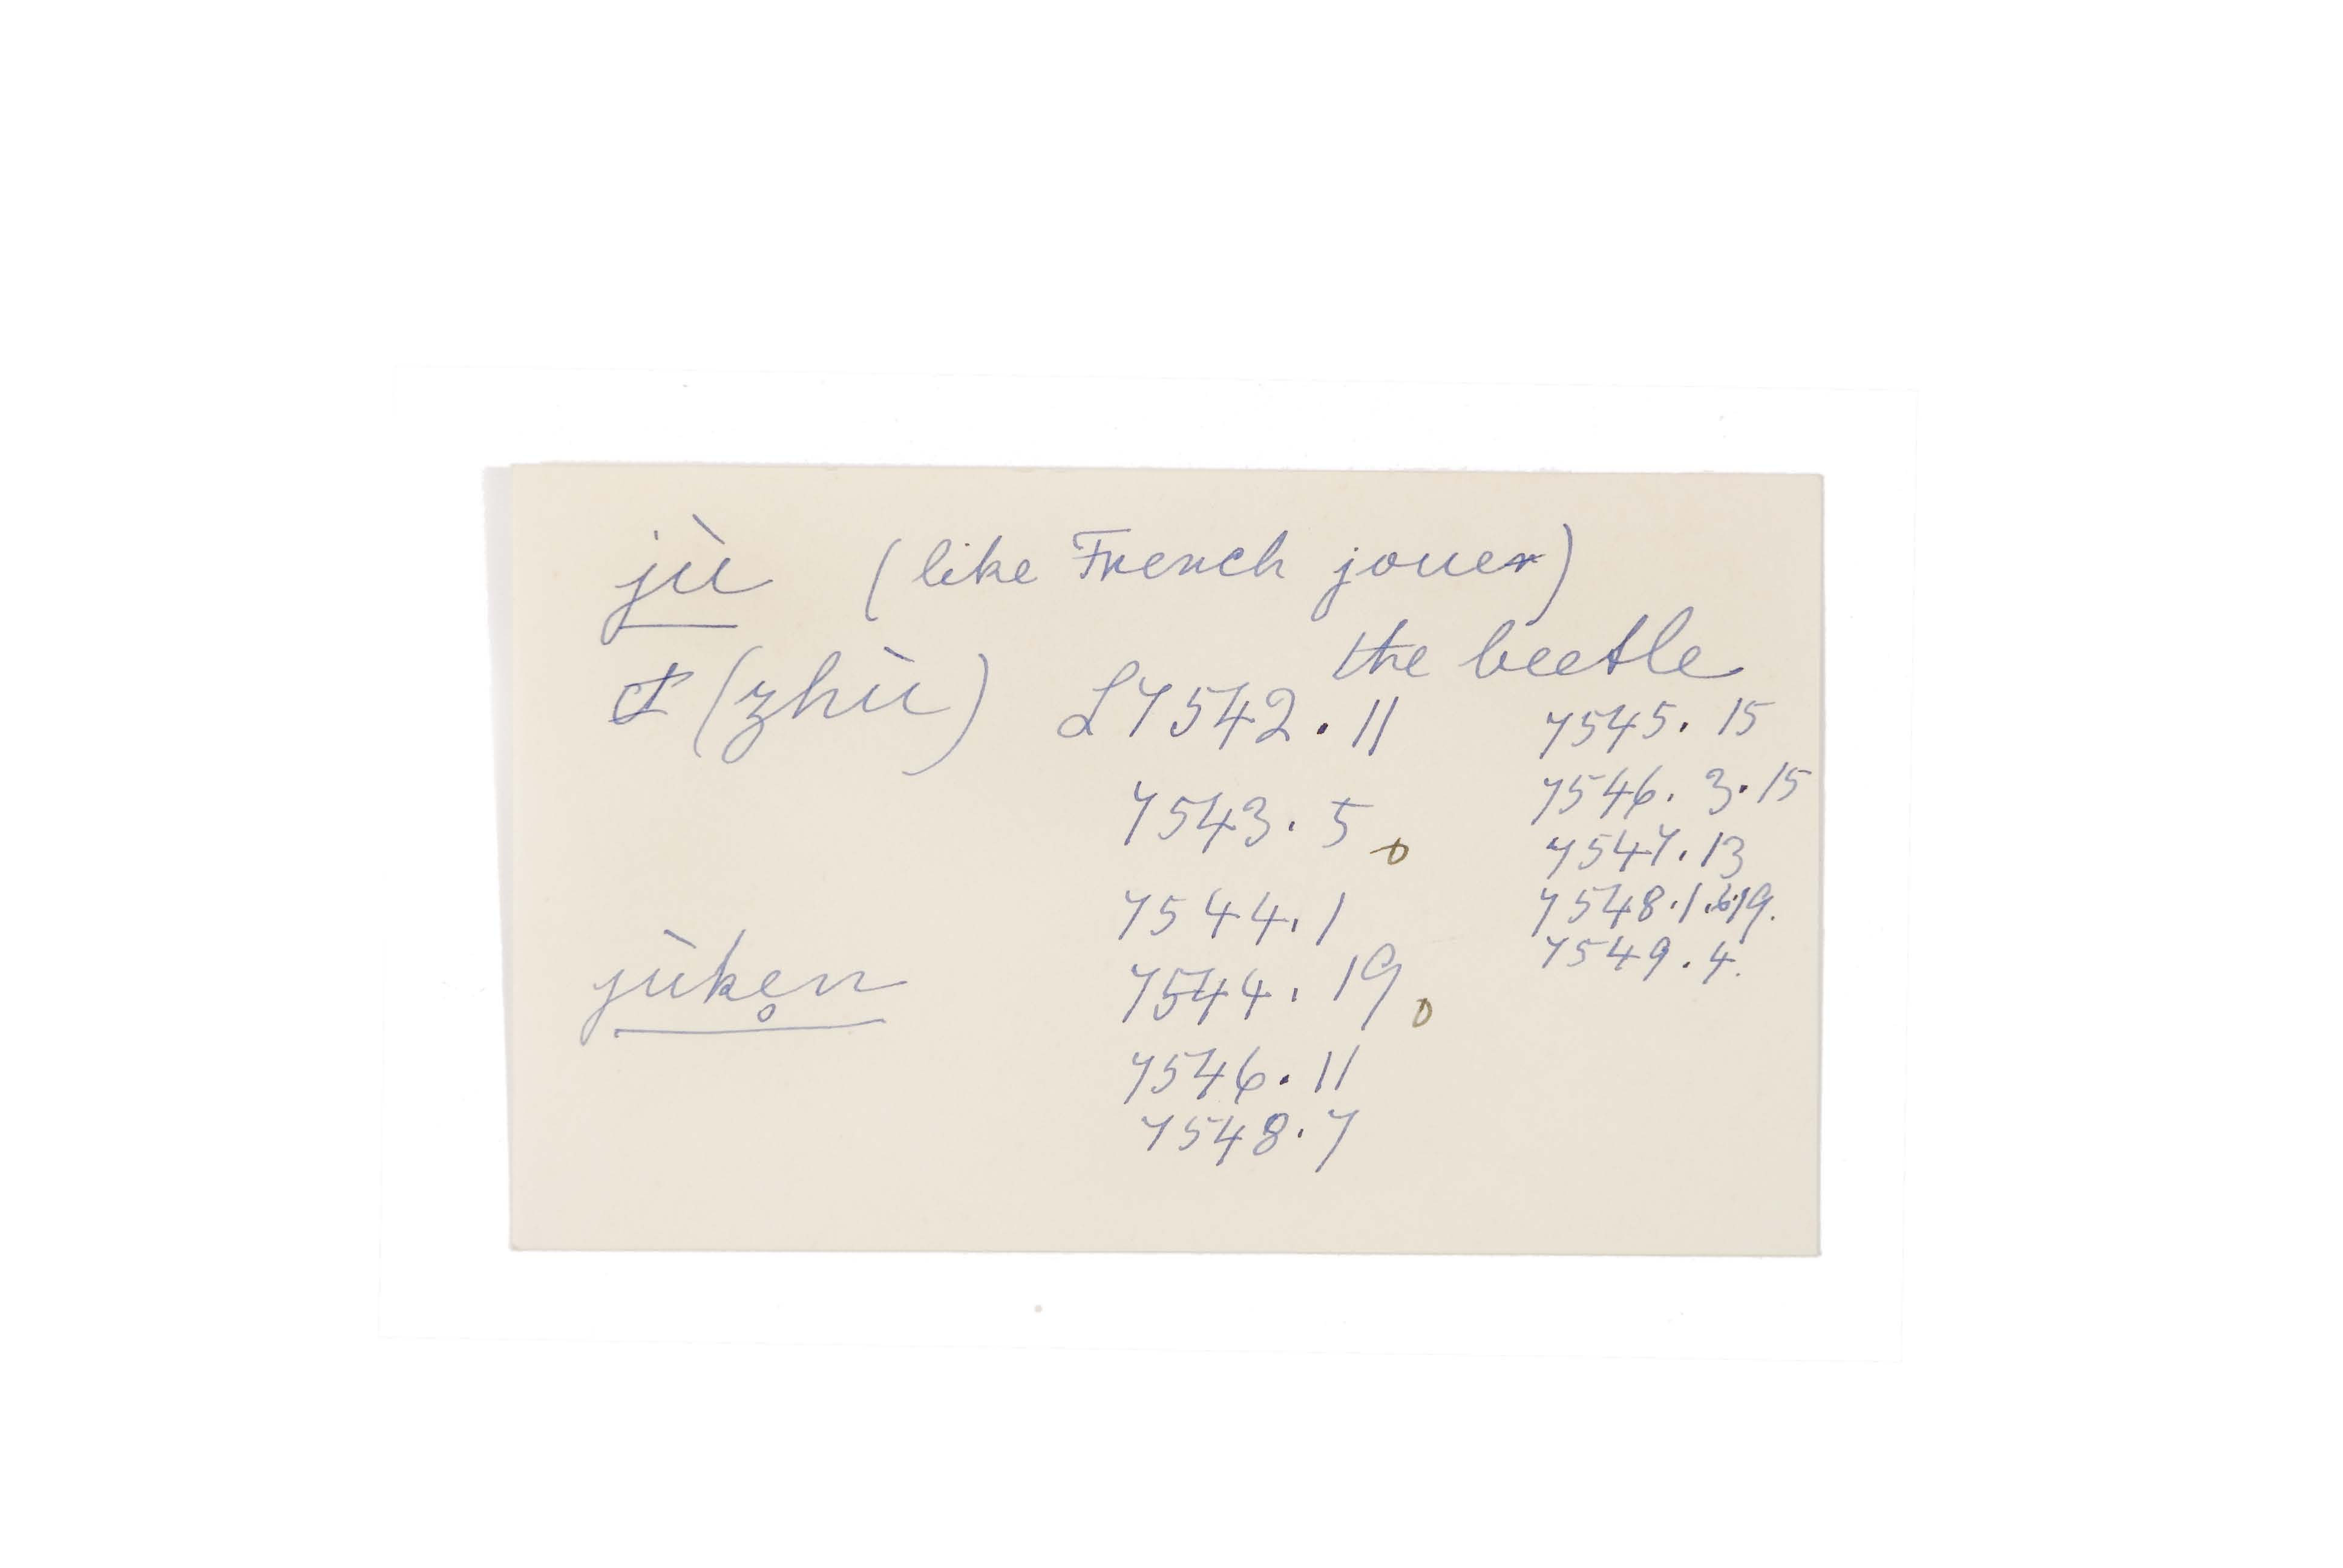 jù (like French jouer)
the beetle
(zhù) L7542.11
7543.5
7544.1
jùke̥n 7544.19
7546.11
7548.7
7545.15
7546.3.15
7547.13
7548.1.6.19.
7549.4.